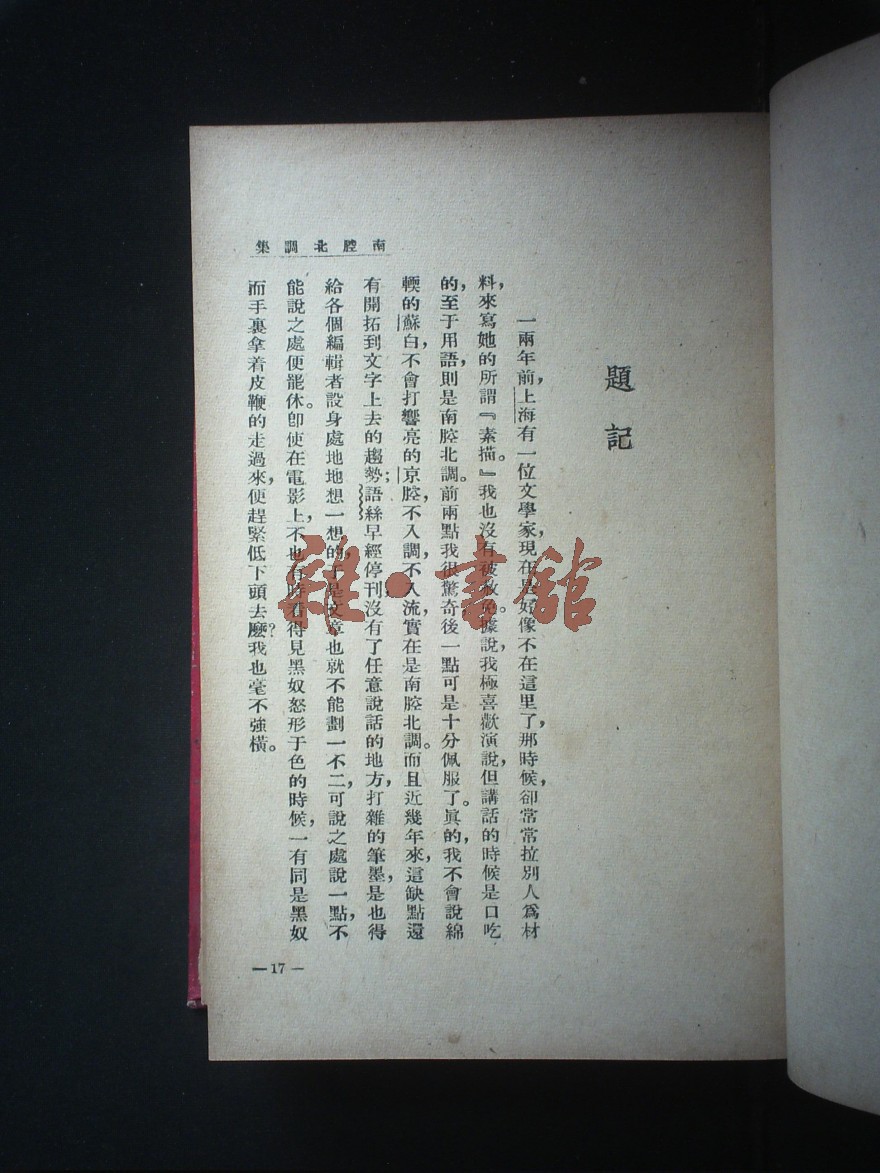 南腔北調集
題記
一兩年前，上海有一位文學家，現在是好像不在這里了，那時候，卻常常拉別人爲材
料，來寫她的所謂『素描。』我也沒有被赦免。據說，我極喜歡演說，但講話的時候是口吃
的，至于用語，則是南腔北調。前兩點我很驚奇，後一點可是十分佩服了。眞的，我不會說綿
輭的蘇白，不會打響亮的京腔，不入調，不入流，實在是南腔北調。而且近幾年來，這缺點還
有開拓到文字上去的趨勢；語絲早經停刊，沒有了任意說話的地方，打雜的筆墨，是也得
給各個編輯者設身處地地想一想的，于是文章也就不能劃一不二，可說之處說一點，不
能說之處便罷休。卽使在電影上，不也有時看得見黑奴怒形于色的時候，一有同是黑奴
而手裏拿着皮鞭的走過來，便趕緊低下頭去麼？我也毫不強橫。
—17—
雜·書館